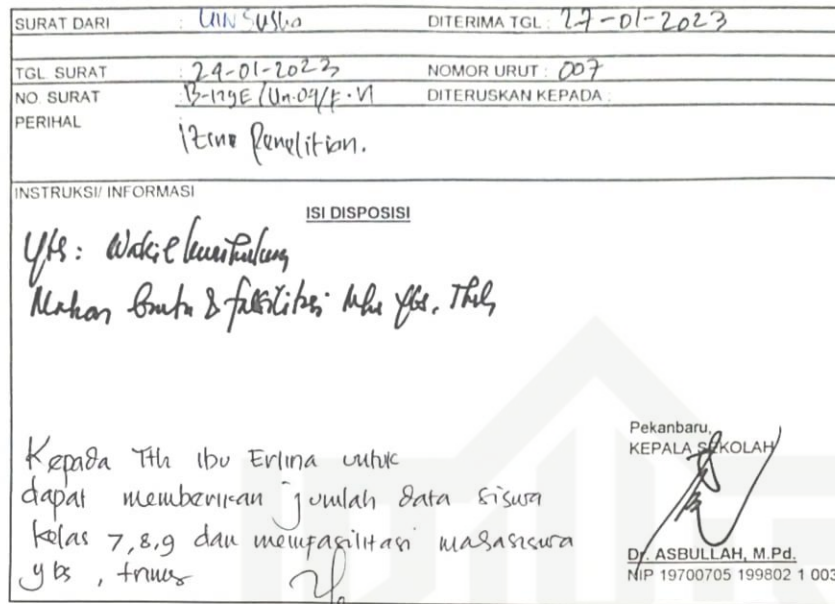 SURAT DARI : UIN Suska DITERIMA TGL : 27-01-2023
TGL. SURAT : 24-01-2023 NOMOR URUT : 007
NO. SURAT : B-179E/Un.04/F.VI DITERUSKAN KEPADA :
PERIHAL
Izine Penelitian.
INSTRUKSI/ INFORMASI
ISI DISPOSISI
Yth: Wakil kurikulum
Mohon bantu & fasilitasi mhs ybs. Thks
Pekanbaru,
KEPALA SEKOLAH
Kepada Yth Ibu Erlina untuk
dapat memberikan jumlah data siswa
kelas 7,8,9 dan memfasilitasi mahasiswa
ybs , trims
Dr. ASBULLAH, M.Pd.
NIP 19700705 199802 1 003